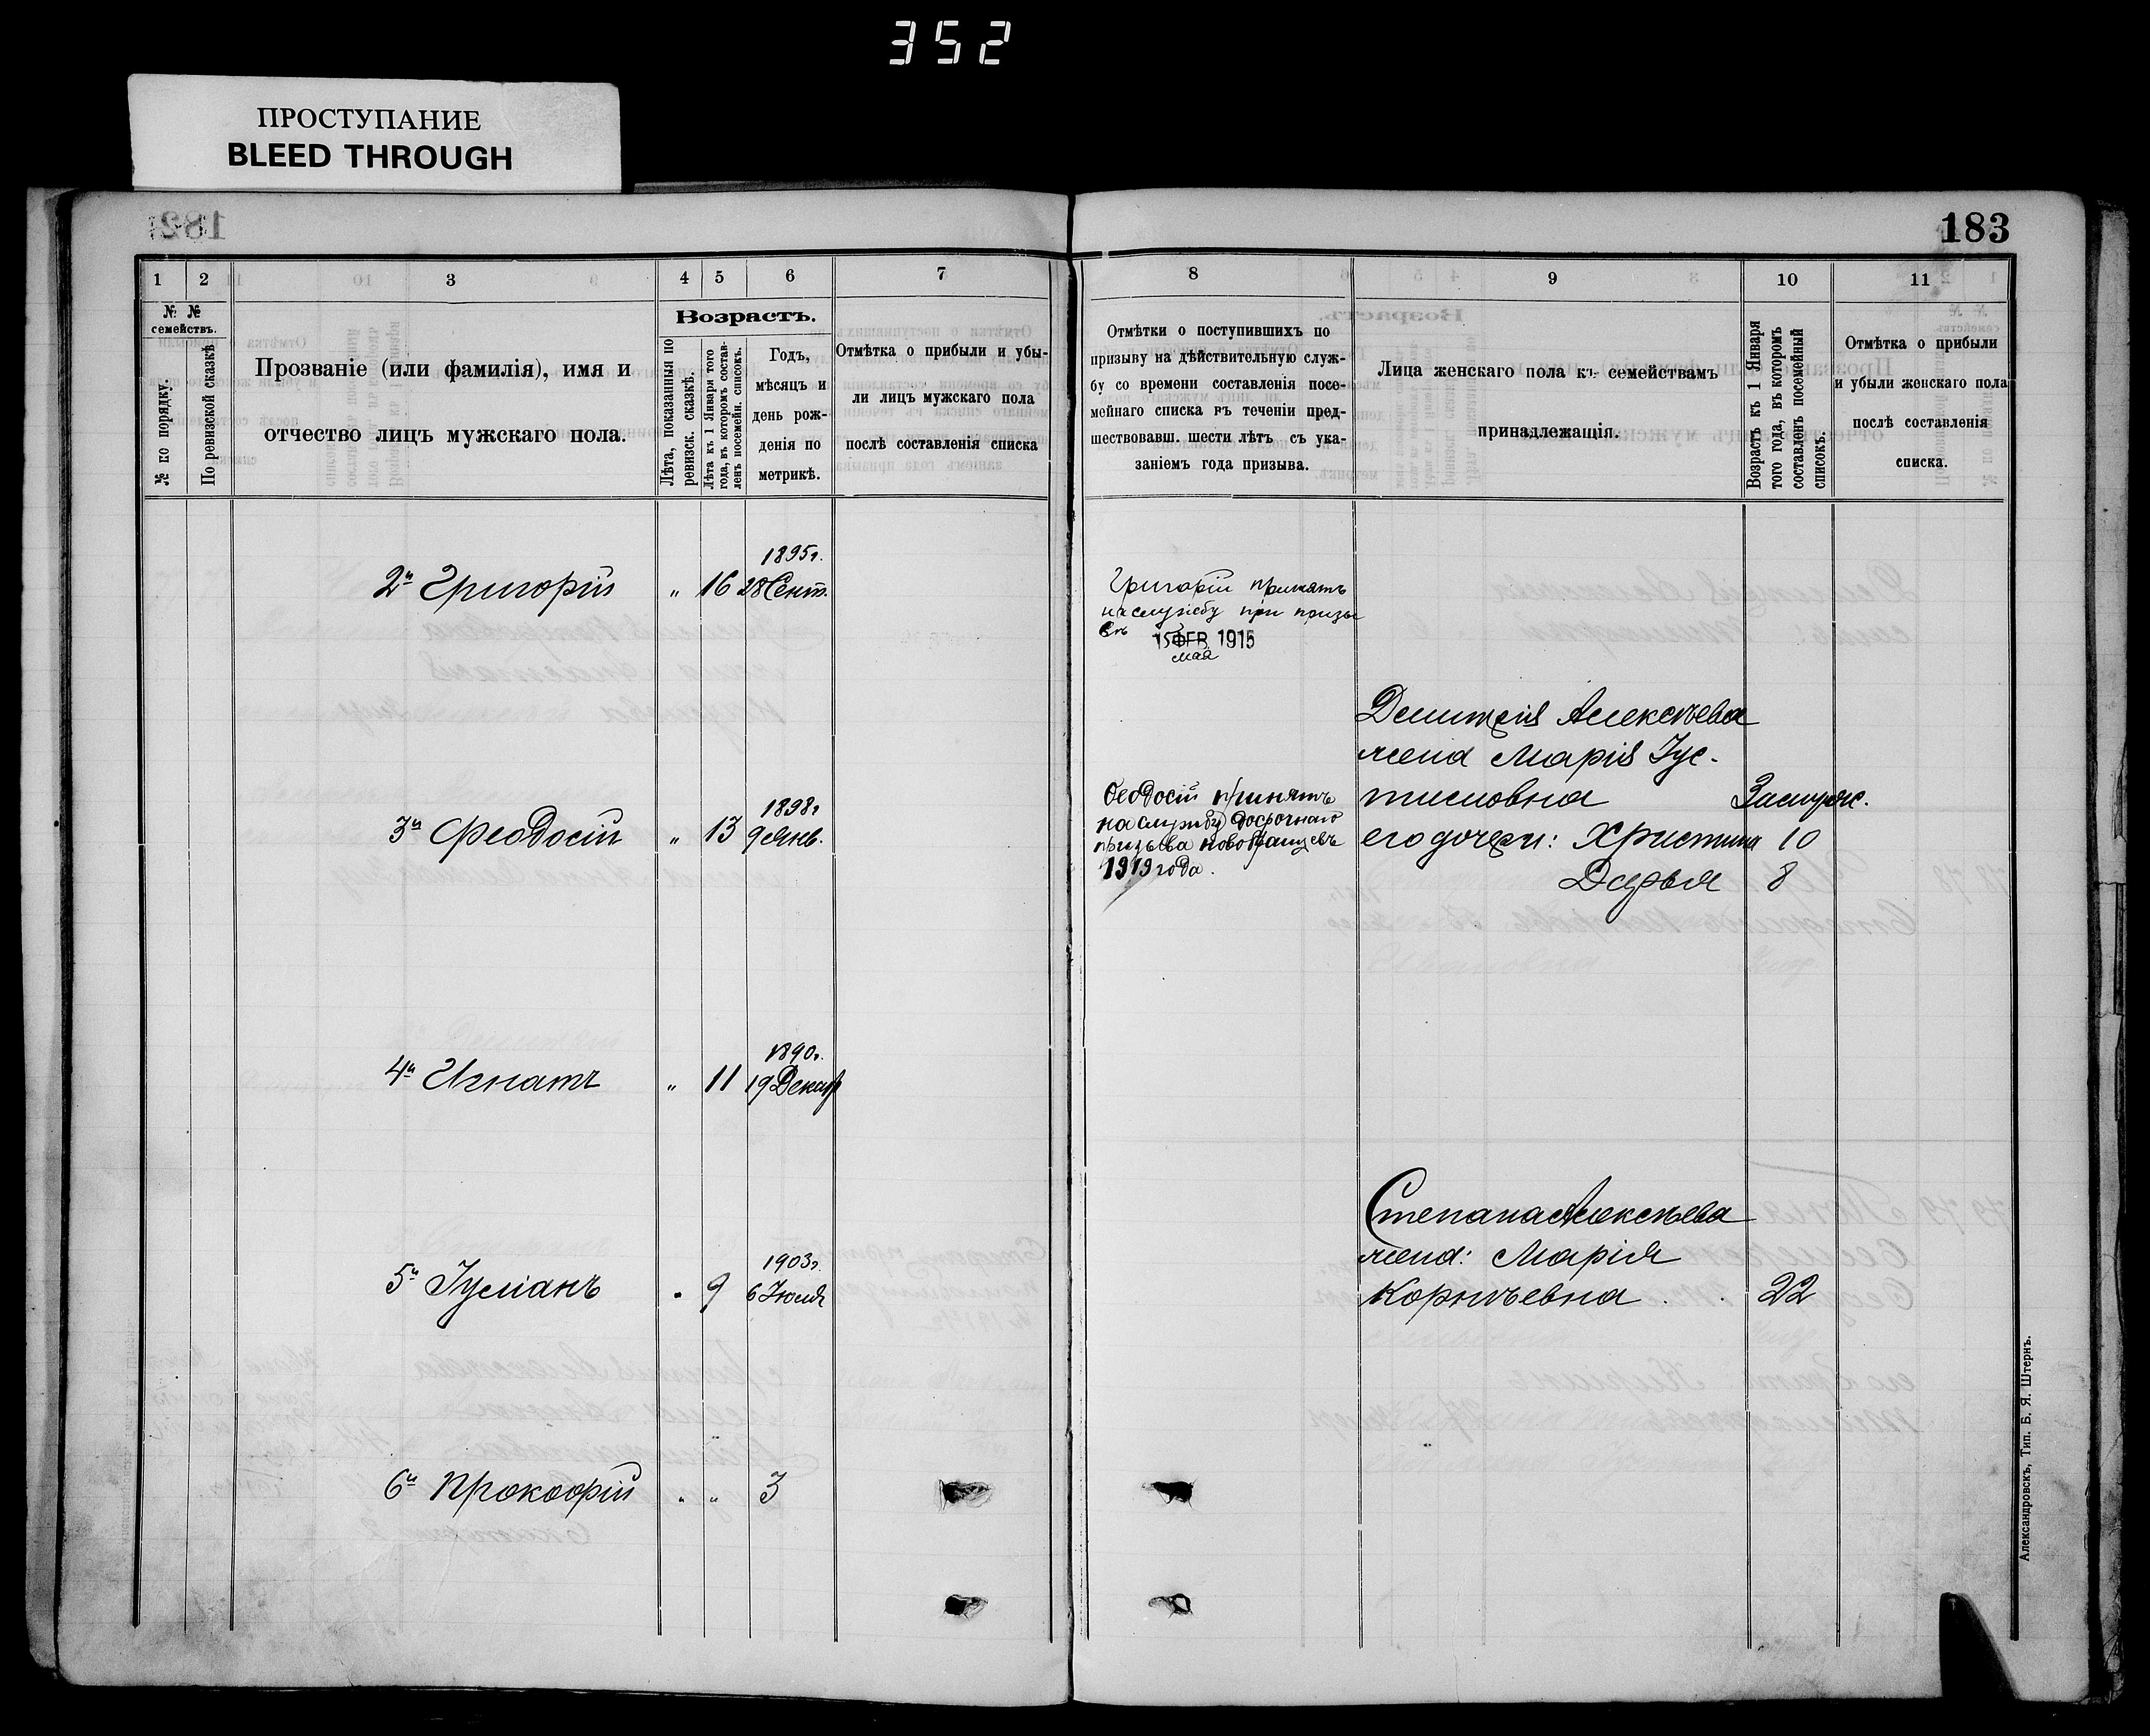 352
ПРОСТУПАНИЕ
BLEED THROUGH
183
1 2 3 4 5 6 7
№ № семействъ.
№ по порядку.
По ревизской сказкѣ
Прозваніе (или фамилія), имя и
отчество лицъ мужскаго пола.
Возрастъ.
Лѣта, показанныя по
ревизск. сказкѣ.
Лѣта къ 1 Января того
года, въ которомъ состав-
ленъ посемейн. списокъ.
Годъ,
мѣсяцъ и
день рож-
денія по
метрикѣ.
Отмѣтка о прибыли и убы-
ли лицъ мужскаго пола
послѣ составленія списка
2й Григорій " 16 1895г.
28 Сент.
3й Феодосій " 13 1898г
9 Янв.
4й Игнатъ " 11 1890г.
19 Декаб
5й Іуліанъ " 9 1903г.
6 Іюля
6й Прокофій " " 3
8 9 10 11
Отмѣтки о поступившихъ по
призыву на дѣйствительную служ-
бу со времени составленія посе-
мейнаго списка въ теченіи пред-
шествовавш. шести лѣтъ съ ука-
заніемъ года призыва.
Лица женскаго пола къ семействамъ
принадлежащія.
Возрастъ къ 1 Января
того года, въ которомъ
составленъ посемейный
списокъ.
Отмѣтка о прибыли
и убыли женскаго пола
послѣ составленія
списка.
Григорій принятъ
на службу при призы
вѣ 15 ФЕВ 1915
мая
Димитрія Алексѣева
жена Марія Іус-
тиновна Замуж.
Феодосій принятъ
на службу досрочнаго
призыва новобранцевъ
1919 года.
его дочери: Христина 10
Дарья 8
Степана Алексѣева
жена: Марія
Корнѣевна 22
Александровскъ, Тип. Б. Я. Штернъ.